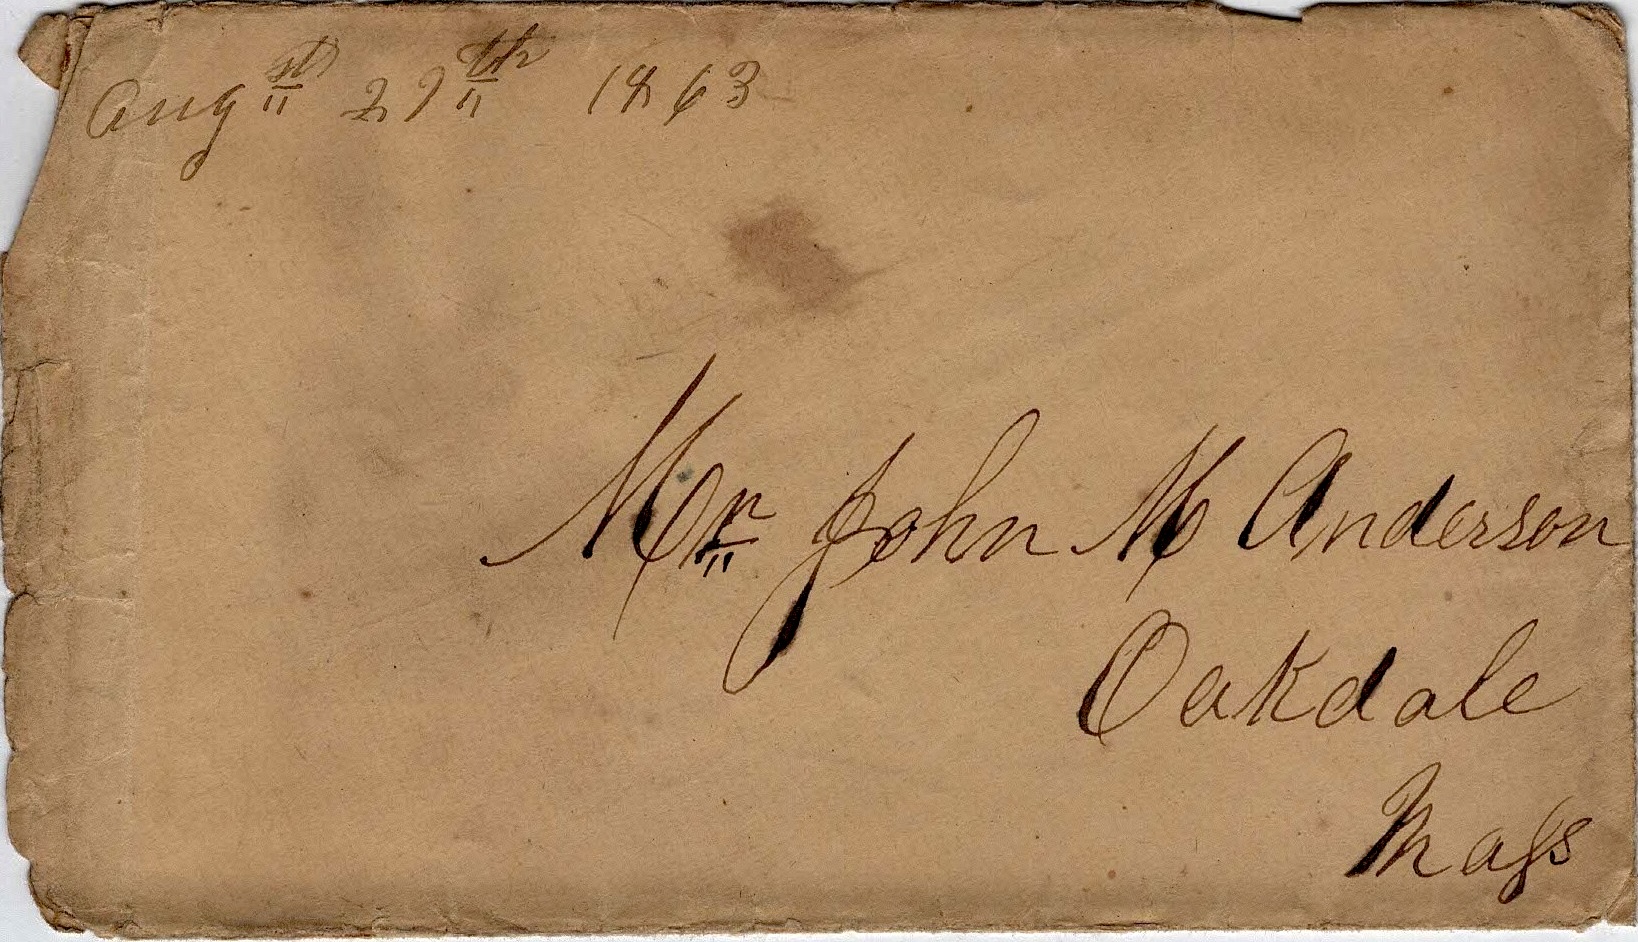 Augst 29th 1863
Mr John M Anderson
Oakdale
Mass